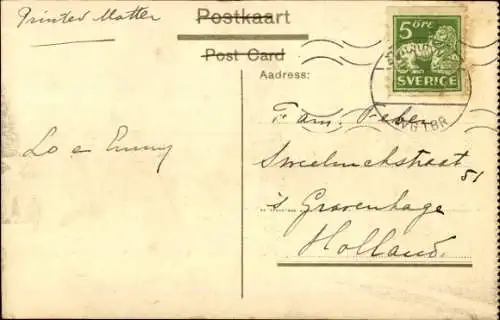 Printed Matter
Postkaart
Post Card
Aadress:
5 ÖRE
SVERIGE
LBR
Fam. Feber
Sweelinckstraat 51
's Gravenhage
Holland.
Lo e Emmy